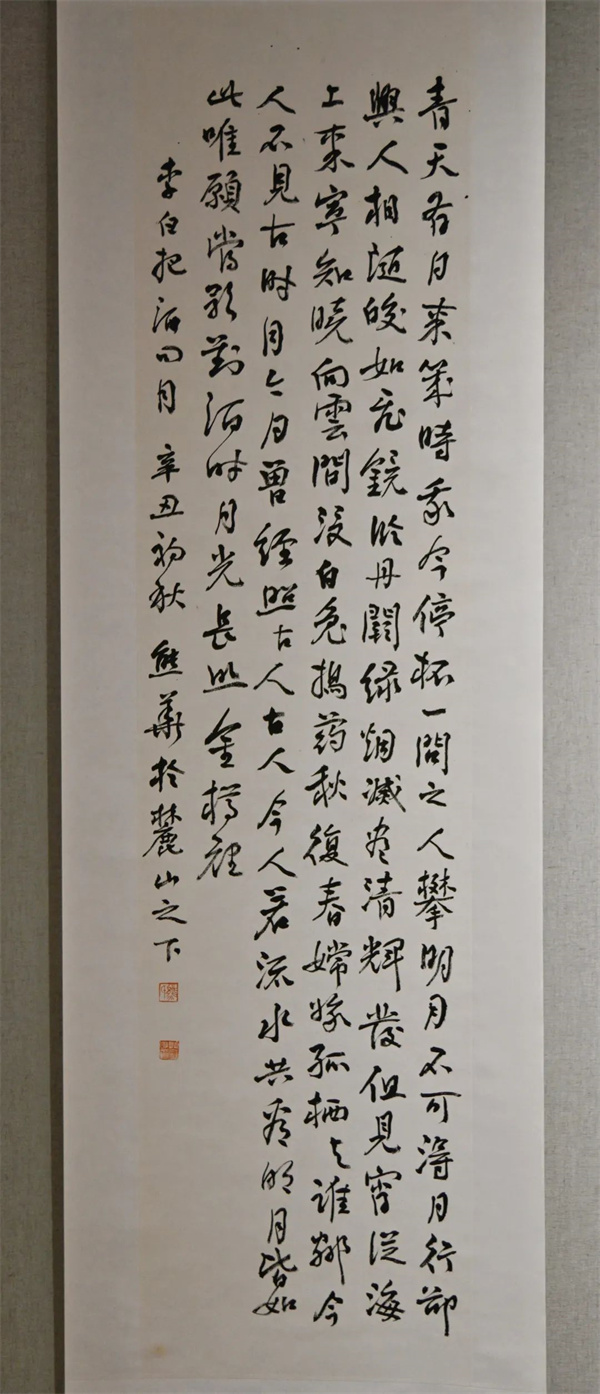 青天有月来幾時我今停杯一問之人攀明月不可得月行卻
與人相隨皎如飛鏡臨丹闕緑烟滅盡清輝發但見宵從海
上来寧知曉向雲間没白兔搗药秋復春嫦娥孤栖与誰鄰今
人不見古时月今月曾經照古人古人今人若流水共看明月皆如
此唯願當歌對酒时月光長照金樽裡
李白把酒問月 辛丑初秋 熊華於麓山之下